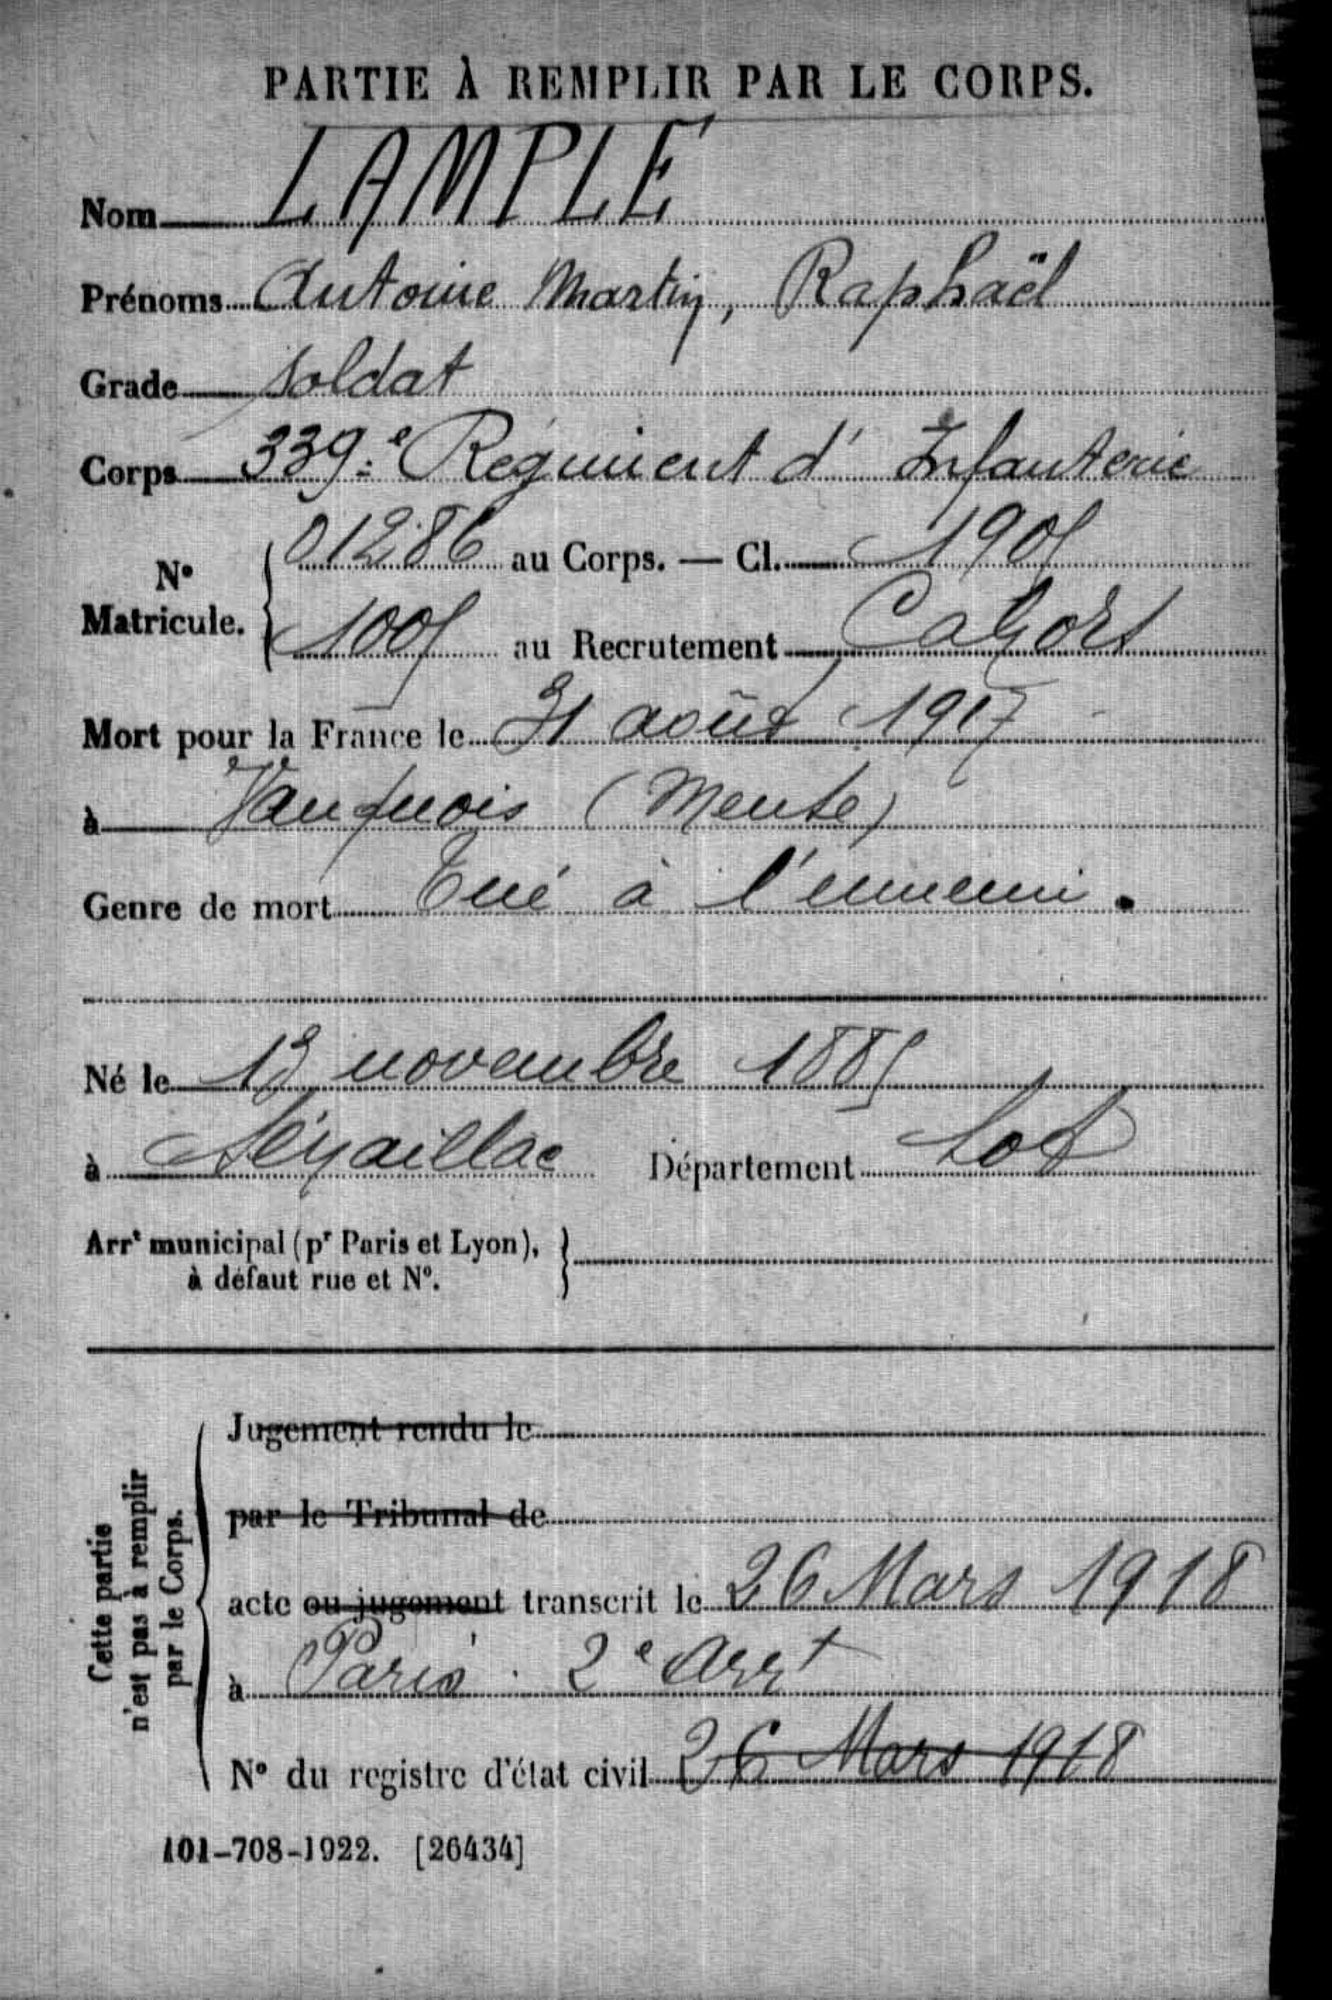 PARTIE À REMPLIR PAR LE CORPS.
Nom LAMPLÉ
Prénoms Antoine Martin, Raphaël
Grade soldat
Corps 339e Régiment d' Infanterie
No Matricule. { 01286 au Corps. — Cl. 1905
1005 au Recrutement Cahors
Mort pour la France le 31 août 1917
à Vauquois (Meuse)
Genre de mort Tué à l'ennemi.
Né le 13 novembre 1885
à Séniaillac Département Lot
Arrt municipal (pr Paris et Lyon), }
à défaut rue et No.
Cette partie
n'est pas à remplir
par le Corps.
Jugement rendu le
par le Tribunal de
acte ou jugement transcrit le 26 Mars 1918
à Paris. 2e arrt
No du registre d'état civil 26 Mars 1918
101-708-1922. [26434]